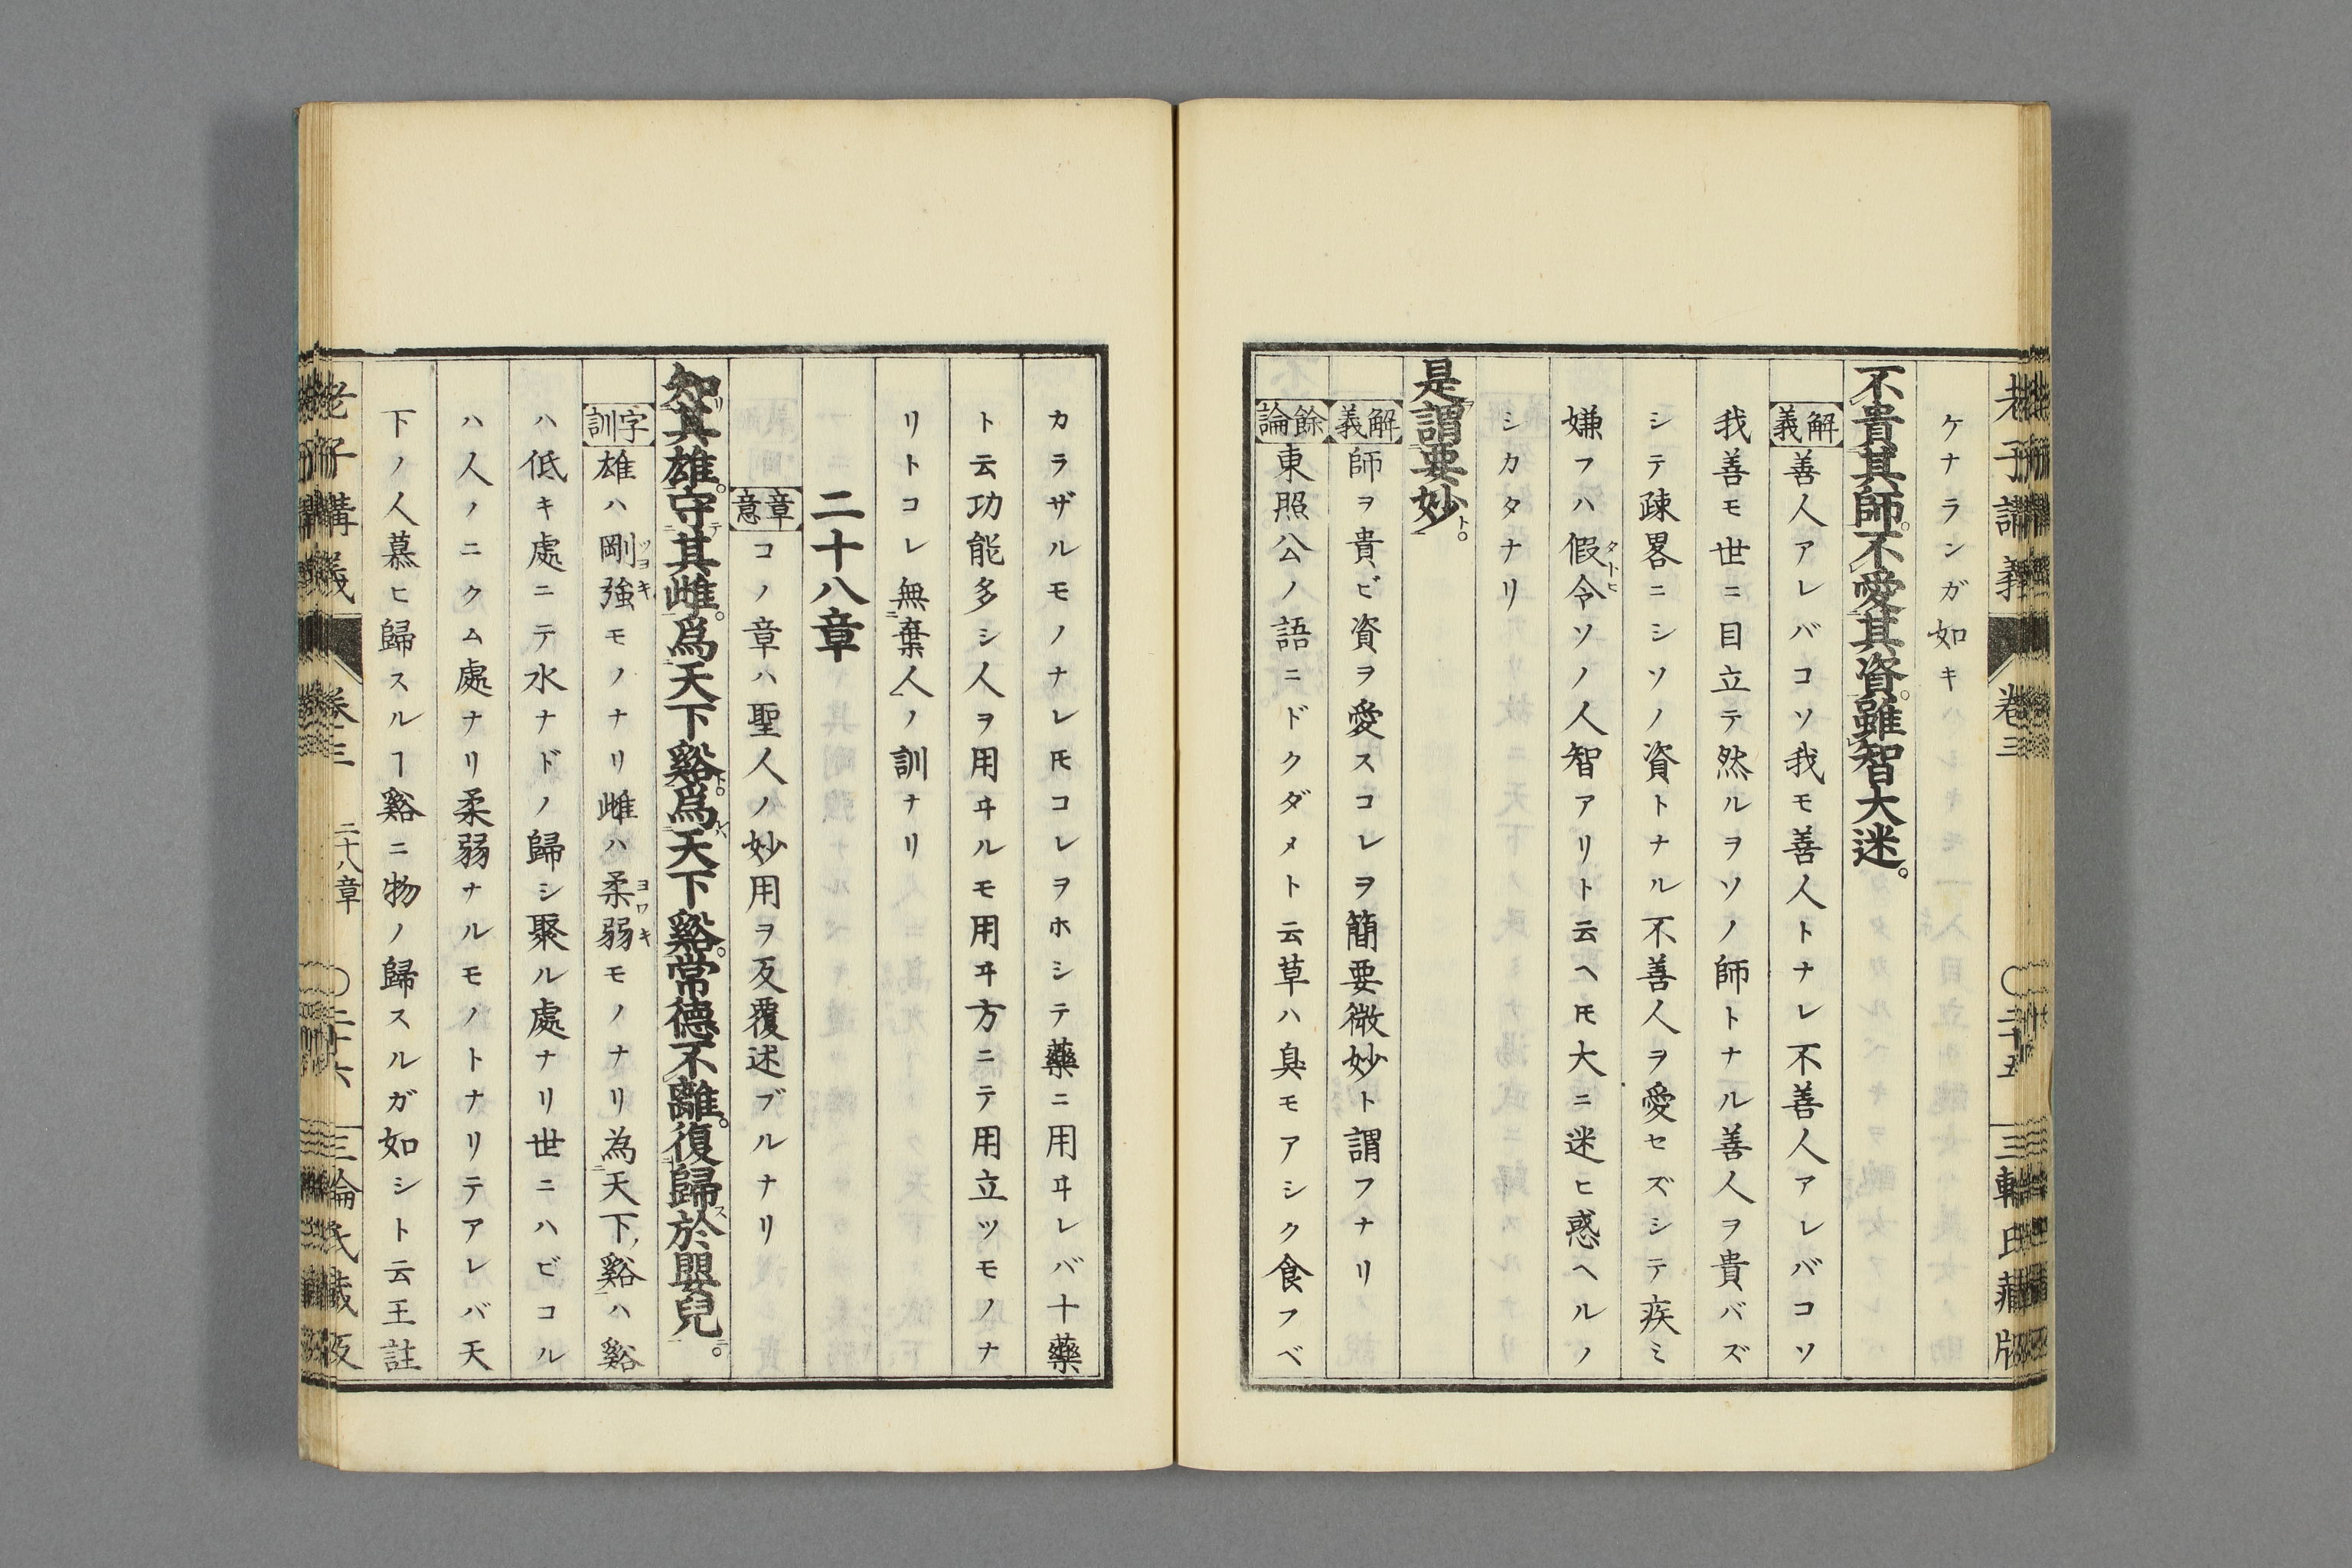 老子講義 卷三 〇二十五 三輪氏藏版
ケナランガ如キ
不貴其師。不愛其資。雖智大迷。
解義 善人アレバコソ我モ善人トナレ不善人アレバコソ
我善モ世ニ目立テ然ルヲソノ師トナル善人ヲ貴バズ
シテ疎畧ニシソノ資トナル不善人ヲ愛セズシテ疾ミ
嫌フハ假令タトヒソノ人智アリト云ヘ𪜈大ニ迷ヒ惑ヘルノ
シカタナリ
是謂要妙ト。
解義 師ヲ貴ビ資ヲ愛スコレヲ簡要微妙ト謂フナリ
餘論 東照公ノ語ニドクダメト云草ハ臭モアシク食フベ
カラザルモノナレ𪜈コレヲホシテ藥ニ用ヰレバ十藥
ト云功能多シ人ヲ用ヰルモ用ヰ方ニテ用立ツモノナ
リトコレ無ニ棄人ノ訓ナリ
二十八章
章意 コノ章ハ聖人ノ妙用ヲ反覆述ブルナリ
知リ其雄。守テ其雌。爲天下谿ト。爲ルハ天下谿。常德不離。復歸ス於嬰兒ニ。
字訓 雄ハ剛強ツヨキモノナリ雌ハ柔弱ヨワキモノナリ為ニ天下ノ谿ハ谿
ハ低キ處ニテ水ナドノ歸シ聚ル處ナリ世ニハビコル
ハ人ノニクム處ナリ柔弱ナルモノトナリテアレバ天
下ノ人慕ヒ歸スルヿ谿ニ物ノ歸スルガ如シト云王註
老子講義 卷三 二十八章 〇二十六 三輪氏藏版